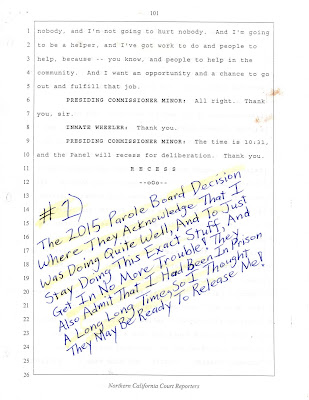 101
1 nobody, and I'm not going to hurt nobody. And I'm going
2 to be a helper, and I've got work to do and people to
3 help, because -- you know, and people to help in the
4 community. And I want an opportunity and a chance to go
5 out and fulfill that job.
6 PRESIDING COMMISSIONER MINOR: All right. Thank
7 you, sir.
8 INMATE WHEELER: Thank you.
9 PRESIDING COMMISSIONER MINOR: The time is 10:31,
10 and the Panel will recess for deliberation. Thank you.
11 R E C E S S
12 --oOo--
13
14
15
16
17
18
19
20
21
22
23
24
25
26
#1)
The 2015 Parole Board Decision
Where They Acknowledge That I
Was Doing Quite Well, And To Just
Stay Doing This Exact Stuff, And
Get In No More Trouble! They
Also Admit That I Had Been In Prison
A Long Long Time, So I Thought
They May Be Ready To Release Me!
Northern California Court Reporters